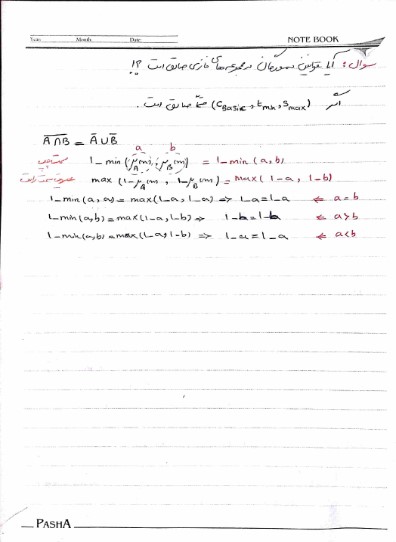 Year: Month: Date: NOTE BOOK
سوال: آیا قوانین دمورگان در مجموعه های فازی صادق است ؟!
اگر (C_Basic , t_min , S_max) صادق است.
A∩B‾ = Ā∪B̄
a b
1 - min (μ_A(x), μ_B(x)) = 1 - min (a, b)
max (1 - μ_A(x), 1 - μ_B(x)) = max (1 - a, 1 - b)
1 - min (a, a) = max (1 - a, 1 - a) => 1 - a = 1 - a ⇐ a = b
1 - min (a, b) = max (1 - a, 1 - b) => 1 - b = 1 - b ⇐ a > b
1 - min (a, b) = max (1 - a, 1 - b) => 1 - a = 1 - a ⇐ a < b
PASHA